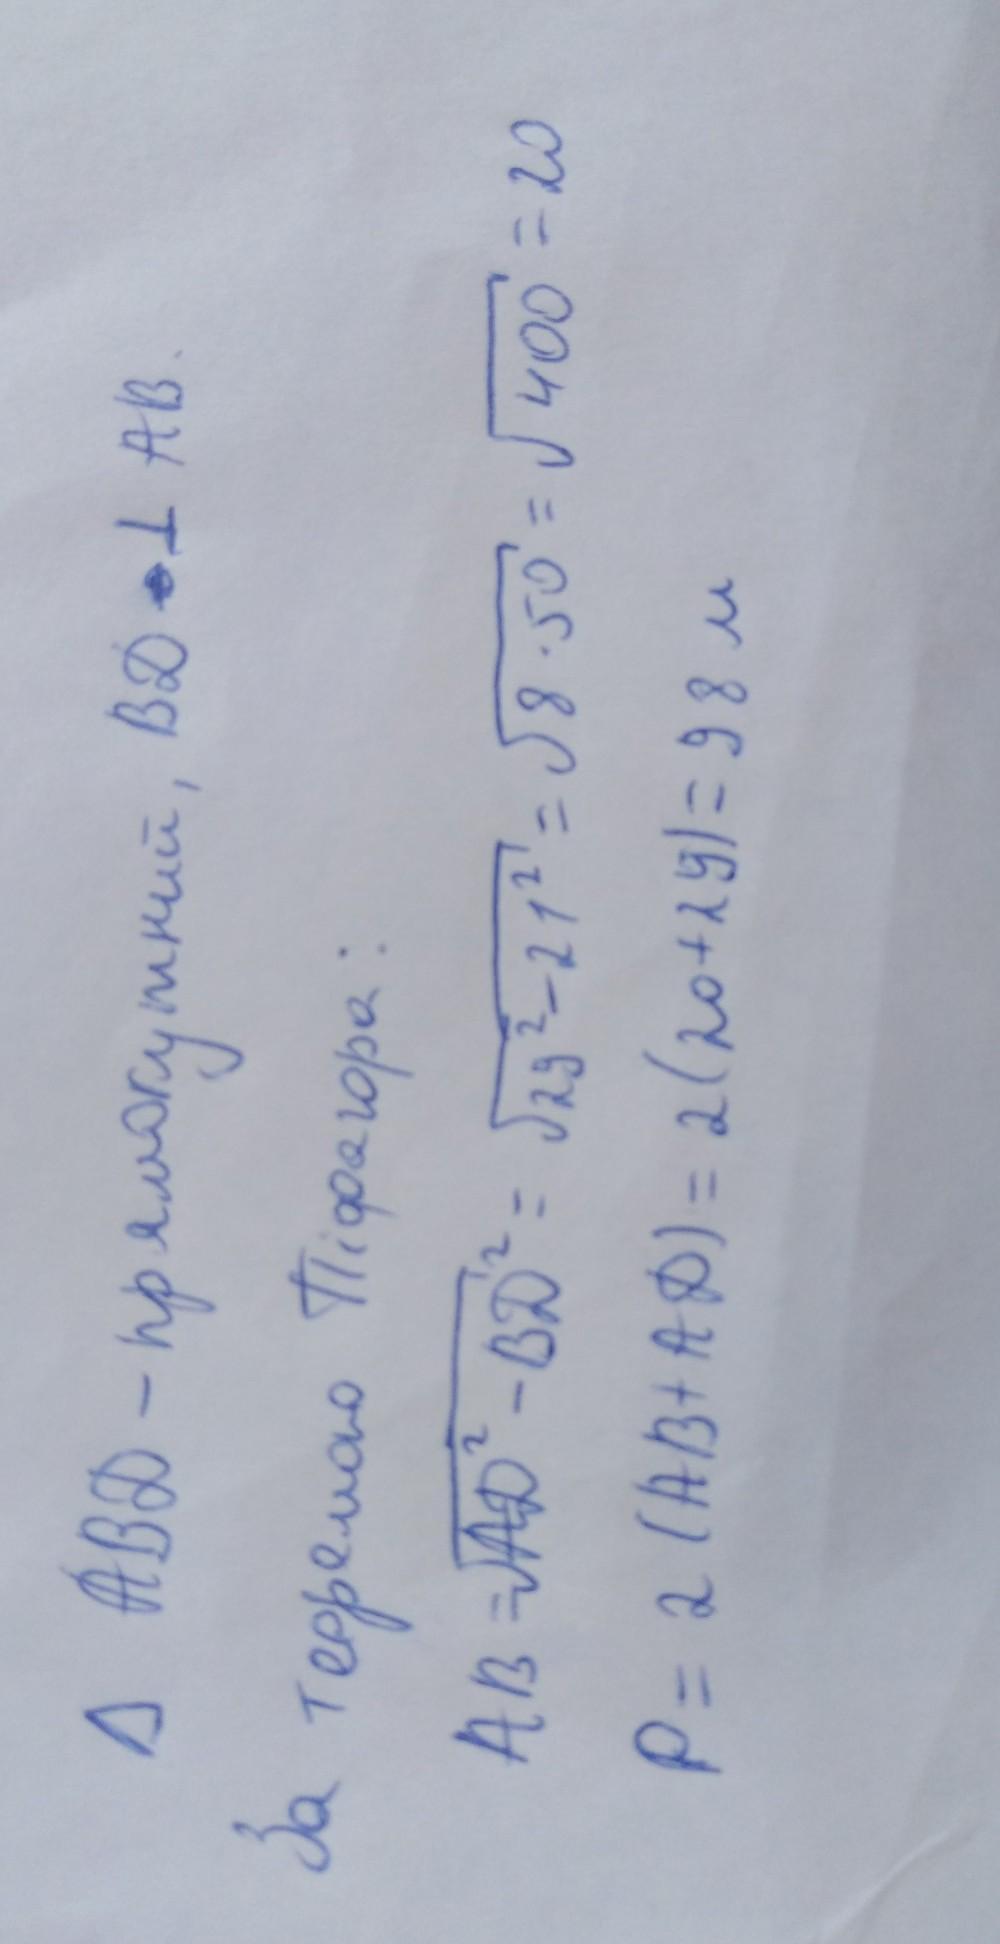 Δ ABD – прямокутний, BD ⊥ AB.
За теоремою Піфагора:
AB = √AD² - BD² = √29² - 21² = √8 · 50 = √400 = 20
P = 2 (AB + AD) = 2 (20 + 29) = 98 м